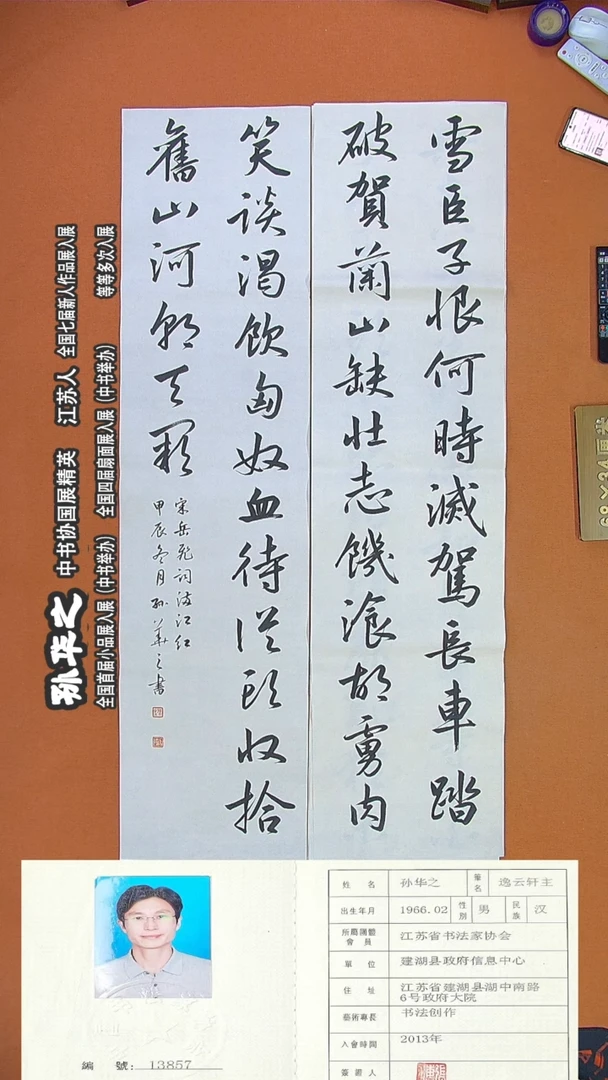 雪臣子恨何時滅駕長車踏
破賀蘭山缺壮志饑飡胡虜肉
笑談渴飲匈奴血待從頭收拾
舊山河朝天闕
宋岳飛詞滿江紅
甲辰冬月孫華之書
孙华之 中书协国展精英 江苏人 全国七届新人作品展入展
全国首届小品展入展（中书举办） 全国四届扇面展入展（中书举办） 等等多次入展
編 號：13857
姓 名 孙华之 筆名 逸云轩主
出生年月 1966.02 性別 男 民族 汉
所屬團體會員 江苏省书法家协会
單 位 建湖县政府信息中心
住 址 江苏省建湖县湖中南路
6号政府大院
藝術專長 书法创作
入會時間 2013年
簽證人